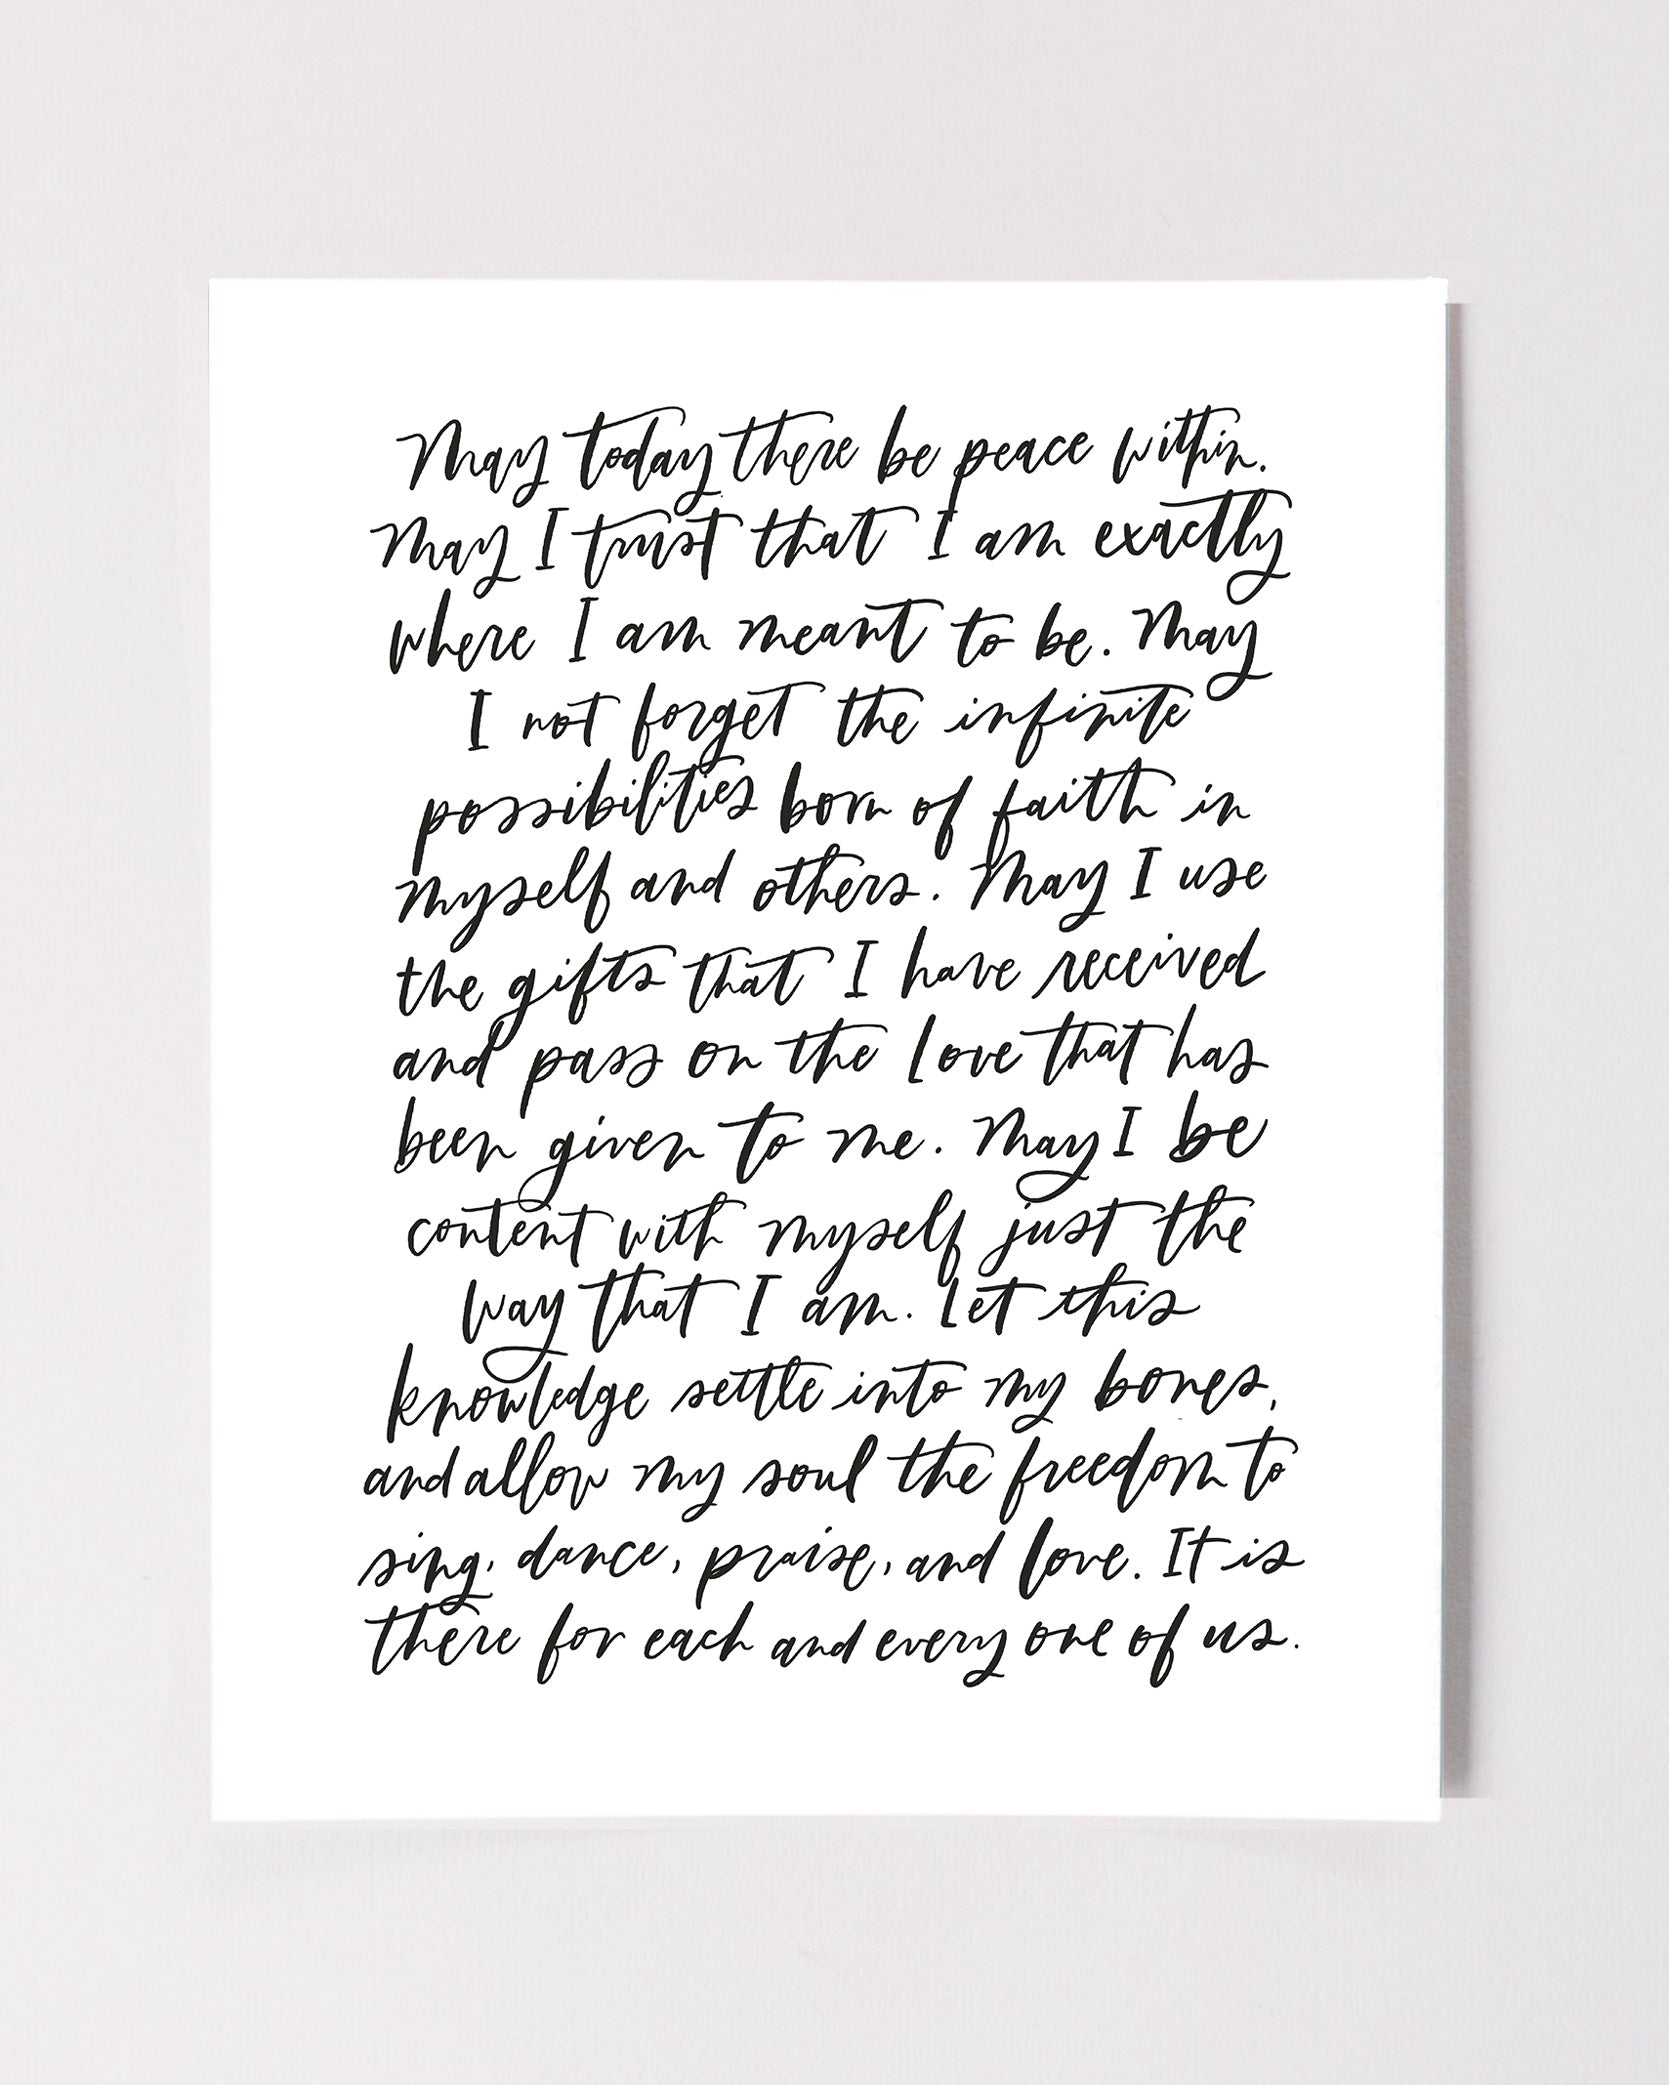 May today there be peace within.
May I trust that I am exactly
where I am meant to be. May
I not forget the infinite
possibilities born of faith in
myself and others. May I use
the gifts that I have received
and pass on the love that has
been given to me. May I be
content with myself just the
way that I am. Let this
knowledge settle into my bones,
and allow my soul the freedom to
sing, dance, praise, and love. It is
there for each and every one of us.